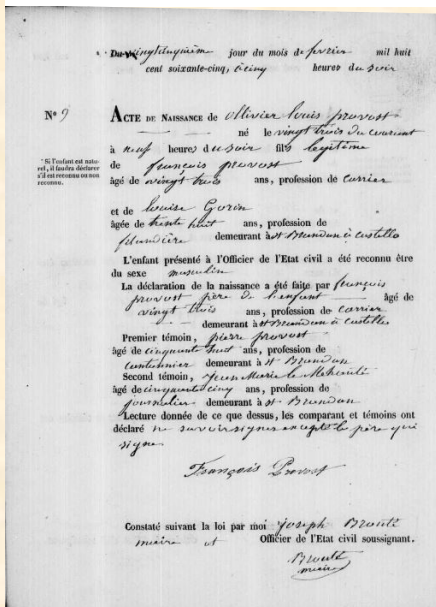 Du vingt cinquième jour du mois de février mil huit
cent soixante-cinq, à cinq heures du soir
N° 9
ACTE DE NAISSANCE de Ollivier Louis provost
né le vingt trois du courant
à neuf heures du soir fils légitime
* Si l'enfant est naturel, il faudra déclarer s'il est reconnu ou non reconnu.
de françois provost
âgé de vingt trois ans, profession de carrier
et de Louise Gorin
âgée de trente huit ans, profession de
filandière demeurant à St Brandan à Castello
L'enfant présenté à l'Officier de l'Etat civil a été reconnu être
du sexe masculin
La déclaration de la naissance a été faite par françois
provost père de l'enfant âgé de
vingt trois ans, profession de carrier
demeurant à St Brandan à Castello
Premier témoin, pierre provost
âgé de cinquante huit ans, profession de
cantonnier demeurant à St Brandan
Second témoin, Jean Marie le
âgé de cinquante cinq ans, profession de
journalier demeurant à St Brandan
Lecture donnée de ce que dessus, les comparant et témoins ont
déclaré ne savoir signer excepté le père qui
signe
François Provost
Constaté suivant la loi par moi joseph
maire et Officier de l'Etat civil soussignant.
maire